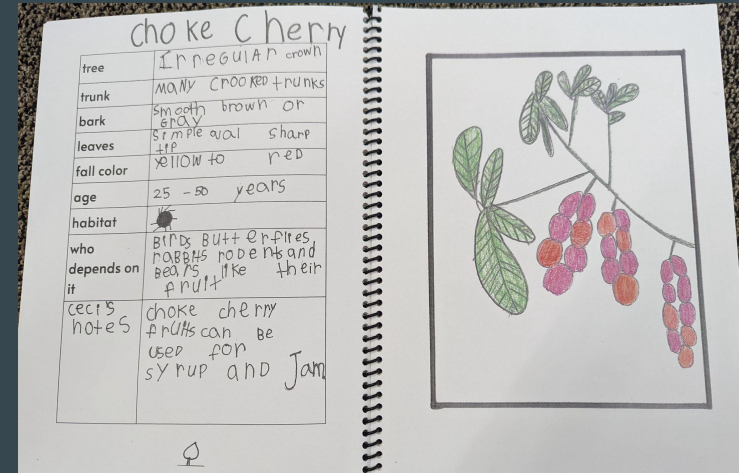 choke Cherry
tree Irregular crown
trunk many crooked trunks
bark smooth brown or
gray
leaves simple oval sharp
tip
fall color yellow to red
age 25-50 years
habitat
who
depends on
it
Birds Butterflies
rabbits rodents and
Bears like their
fruit
ceci's
notes
choke cherry
fruits can Be
used for
syrup and Jam